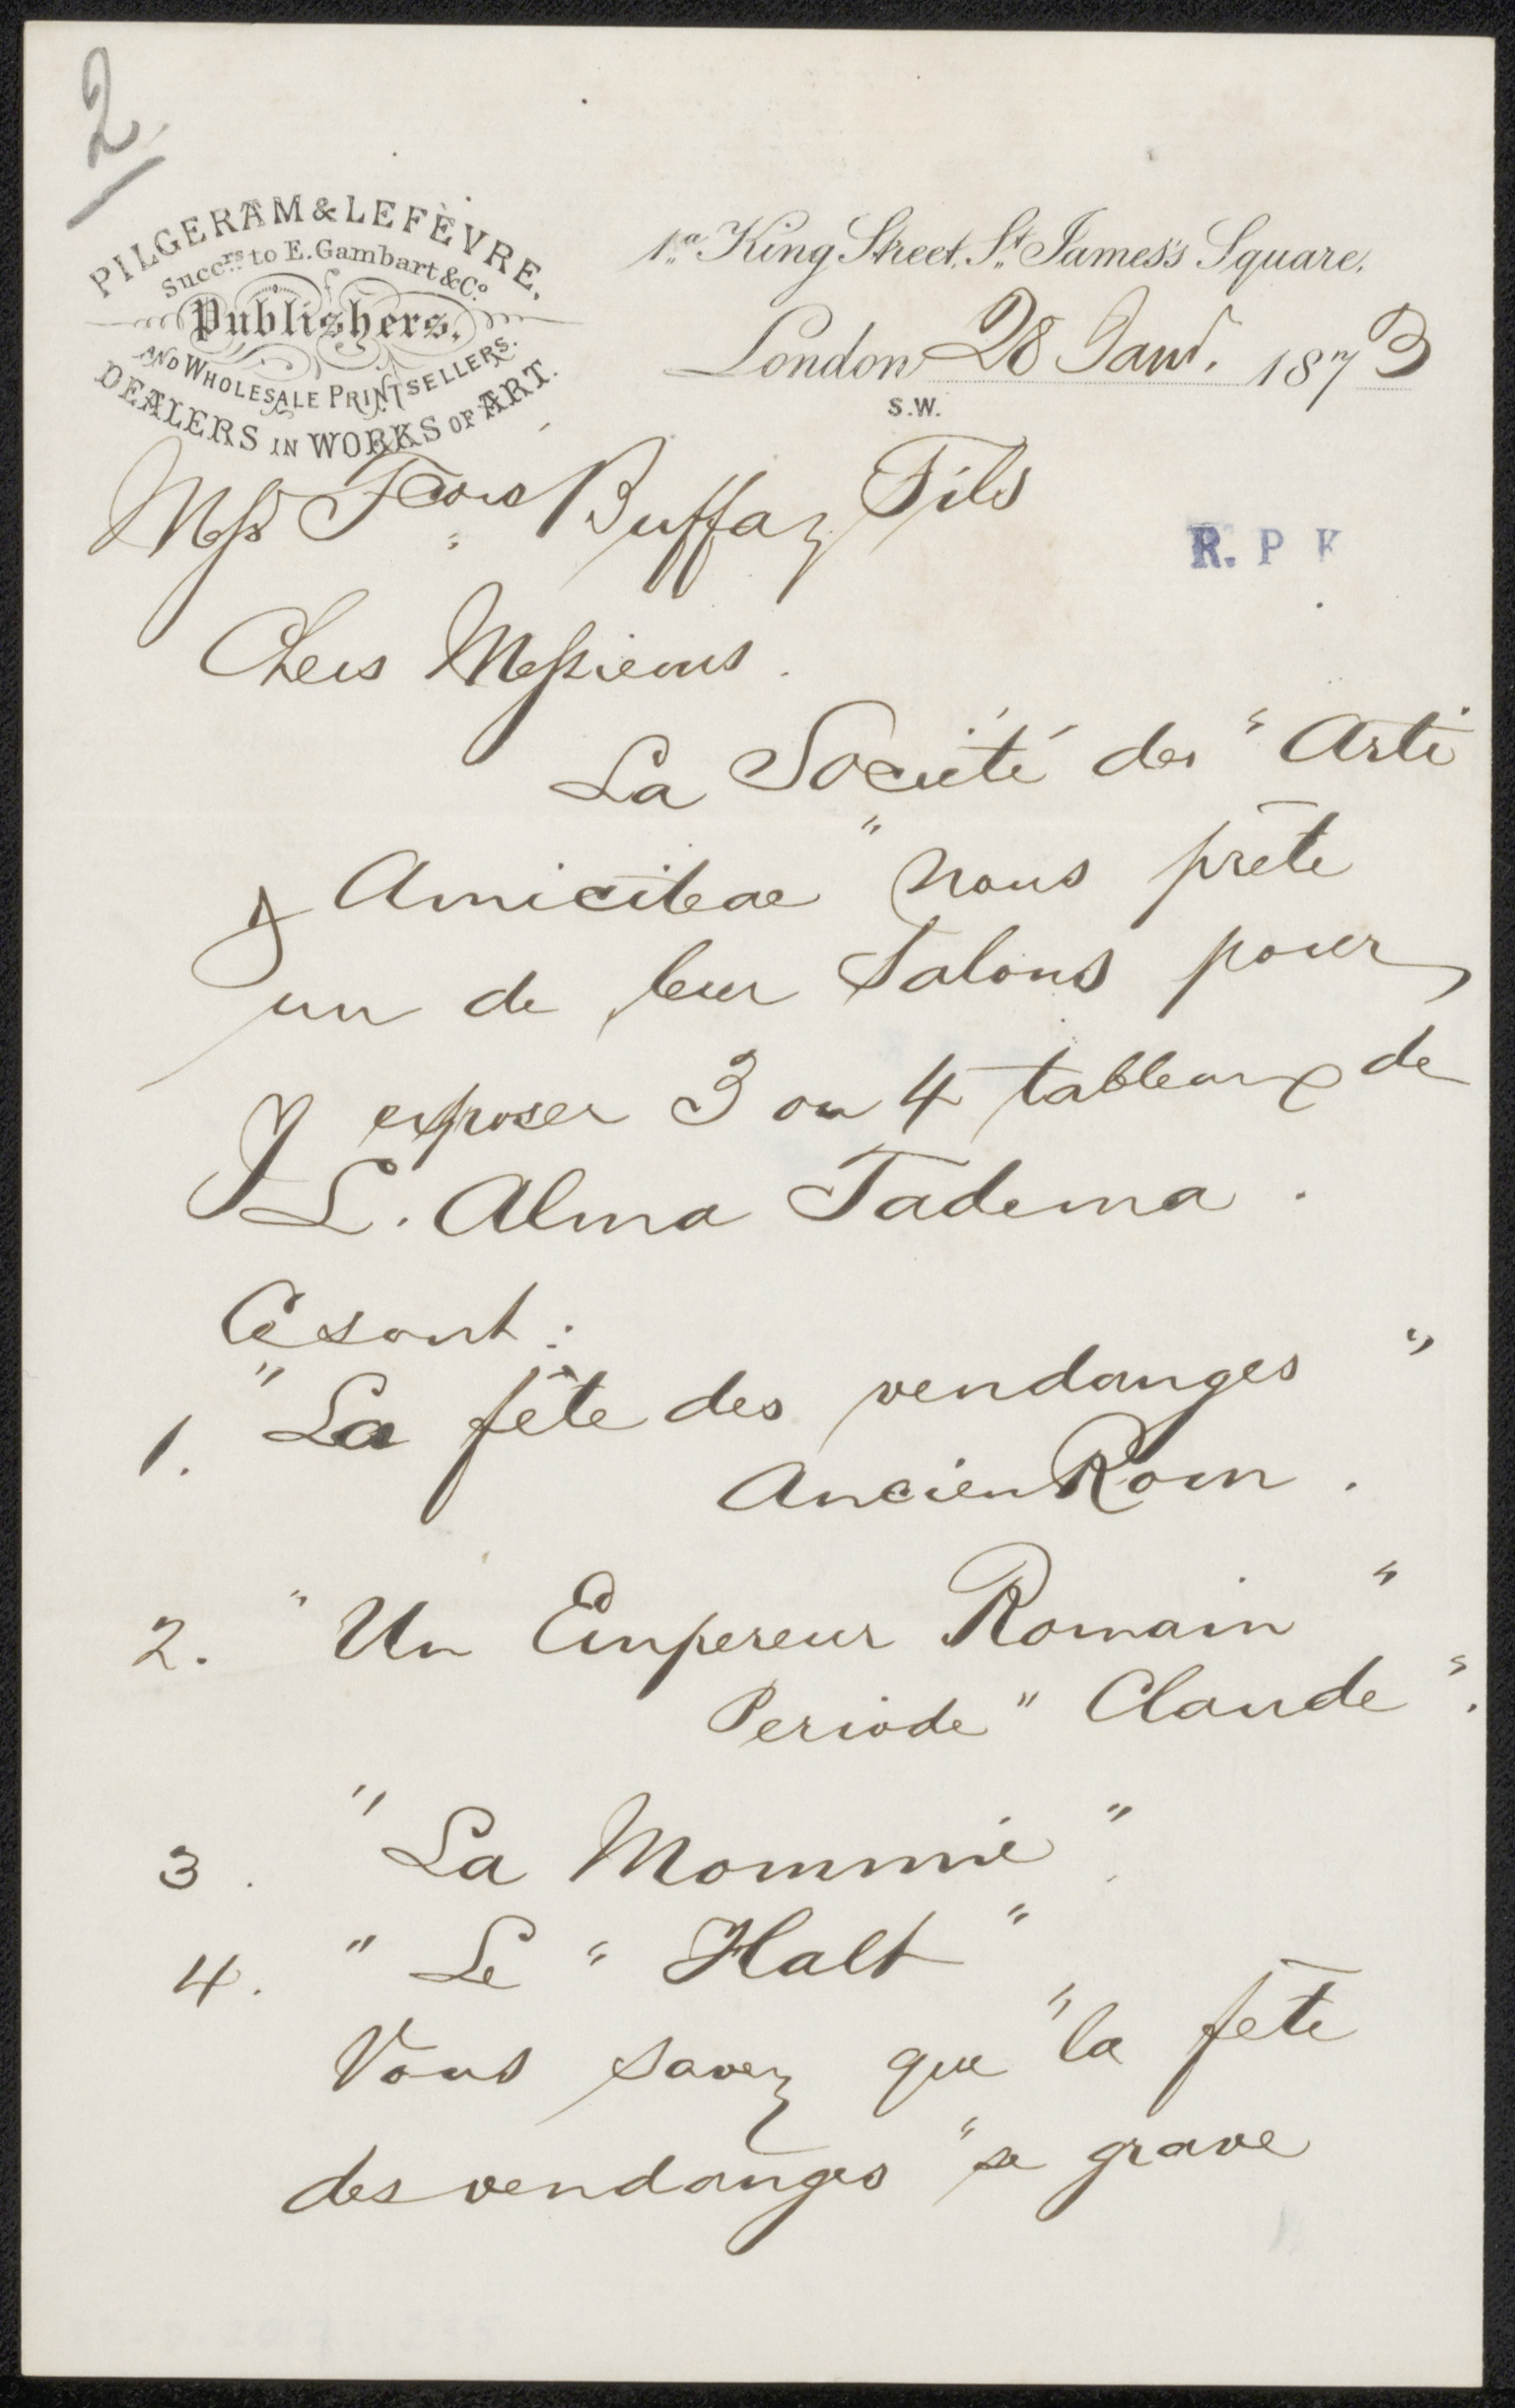 2
PILGERAM & LEFÈVRE,
Succrs to E. Gambart & Co.
Publishers,
AND WHOLESALE PRINTSELLERS.
DEALERS IN WORKS OF ART.
1a King Street, St. James's Square,
London 28 Janv. 1873
S.W.
Messrs Buffa z Fils
R. P K
Chers Messieurs.
La Société des "Arti
& Amiciteae" nous prête
un de leur Salons pour
y exposer 3 ou 4 tableaux de
L. Alma Tadema.
Ce sont:
1. "La fête des vendanges"
Ancien Rom.
2. "Un Empereur Romain"
Periode "Claude".
3. "La Mommie".
4. "Le "Halt"
Vous savez que "la fête
des vendanges" se grave